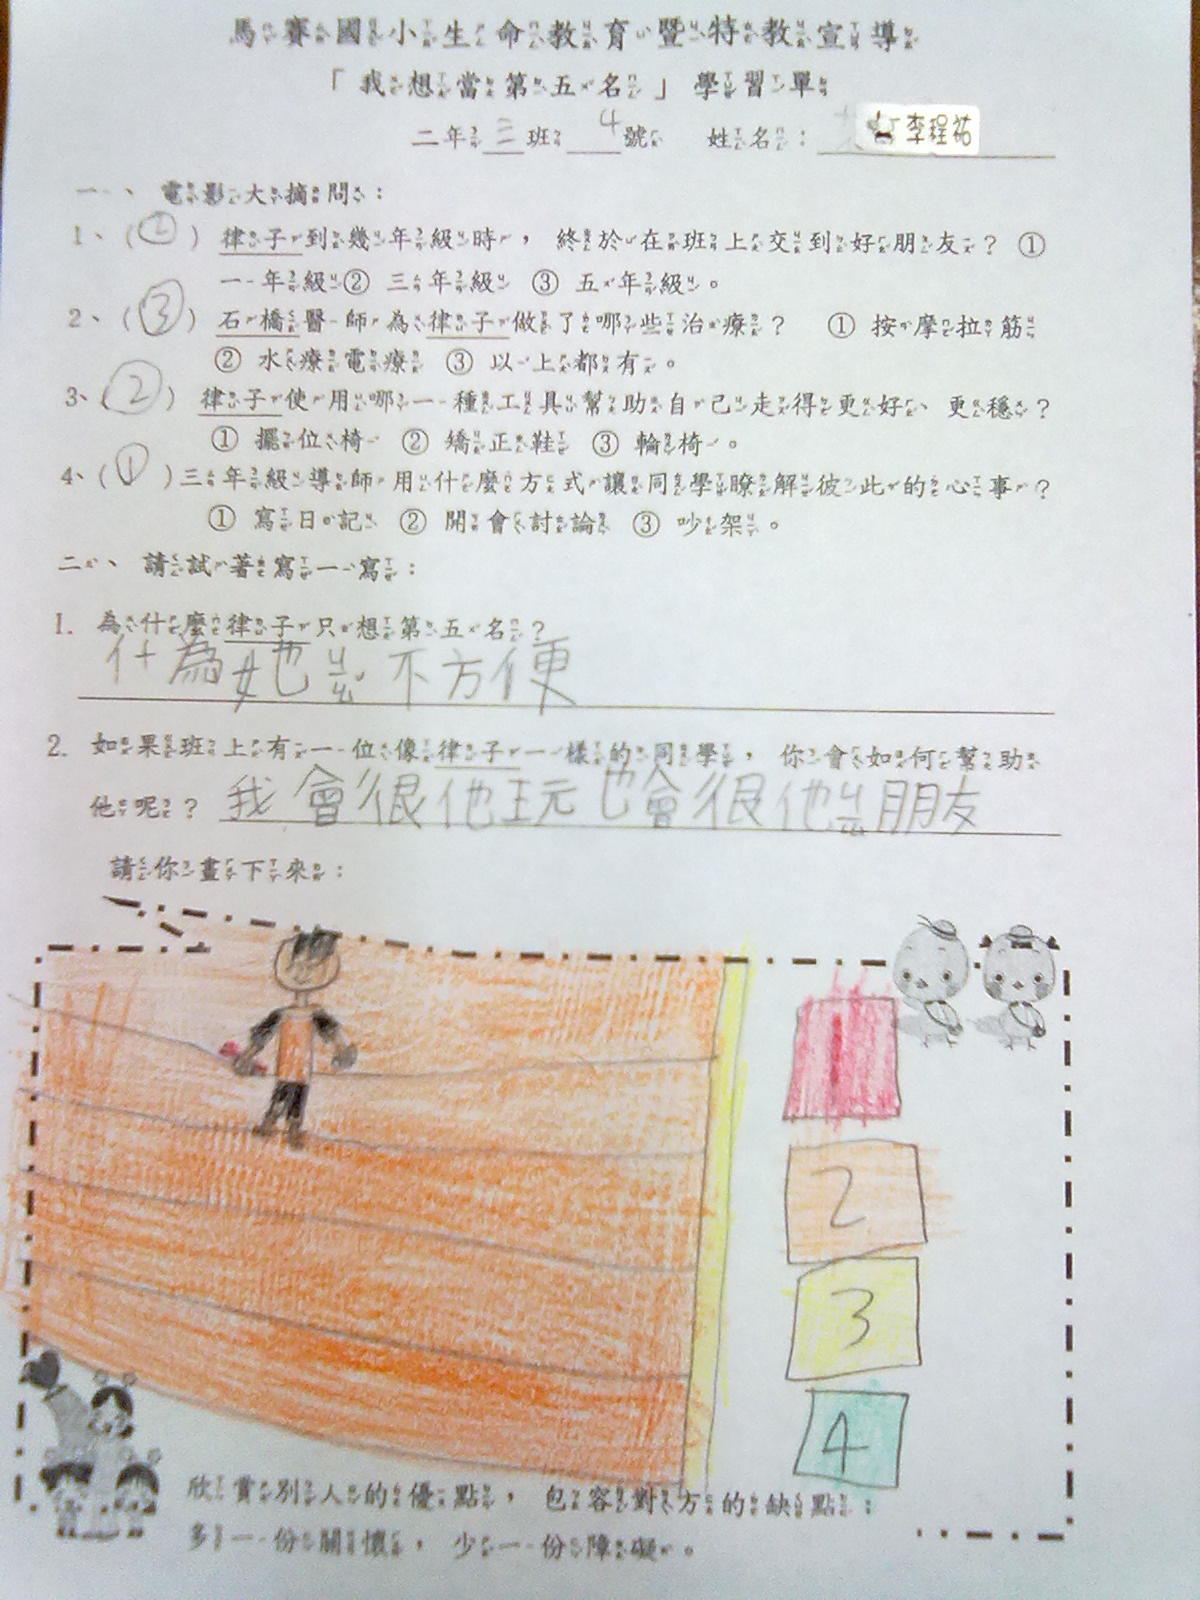 馬賽國小生命教育暨特教宣導
「我想當第五名」學習單
二年三班 4號 姓名： 李程祐
一、電影大摘問：
1、(2) 律子到幾年級時，終於在班上交到好朋友？①
一年級② 三年級 ③ 五年級。
2、(3) 石橋醫師為律子做了哪些治療？ ① 按摩拉筋
② 水療電療 ③ 以上都有。
3、(2) 律子使用哪一種工具幫助自己走得更好、更穩？
① 擺位椅 ② 矯正鞋 ③ 輪椅。
4、(1) 三年級導師用什麼方式讓同學瞭解彼此的心事？
① 寫日記 ② 開會討論 ③ 吵架。
二、請試著寫一寫：
1. 為什麼律子只想第五名？
什為她ㄐㄧㄠˇ不方便
2. 如果班上有一位像律子一樣的同學，你會如何幫助
他呢？ 我會很他玩也會很他ㄐㄠ朋友
請你畫下來：
1
2
3
4
欣賞別人的優點，包容對方的缺點；
多一份關懷，少一份障礙。